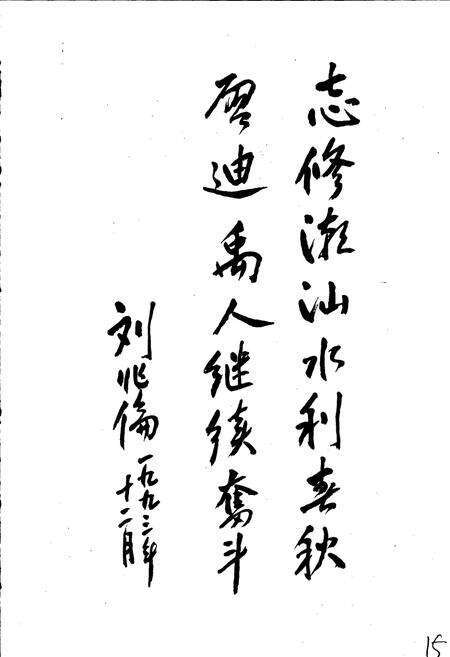 志修潮汕水利春秋
启迪禹人继续奋斗
刘兆伦
一九九三年
十二月
15